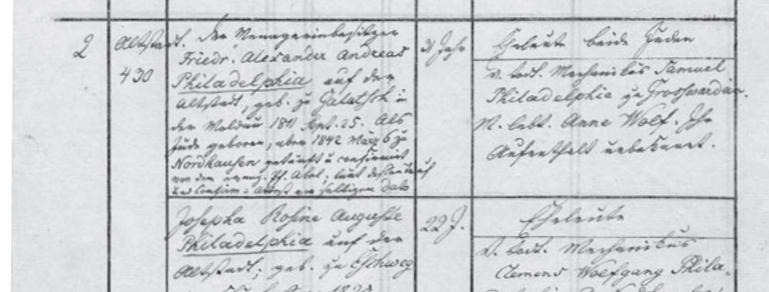 2
Altstadt.
430
Der Menageriebesitzer
Friedr. Alexander Andreas
Philadelphia auf der
Altstadt, geb. zu Galatsch in
der Moldau 1811 Sept. 25. Als
Jude geboren, aber 1842 März 6 zu
Nordhausen getauft u confirmirt
von dem evang. Pf. Abel; laut
31 Jahr
Eheleute beide Juden
V. todt. Mechanikus Samuel
Philadelphia zu Grosswardein.
M. lebt. Anne Wolf. Ihr
Aufenthalt unbekannt.
Josepha Rosine Auguste
Philadelphia auf der
Altstadt; geb. zu Eschweg
22 J.
Eheleute
V. todt. Mechanikus
Clemens Wolfgang Phila-